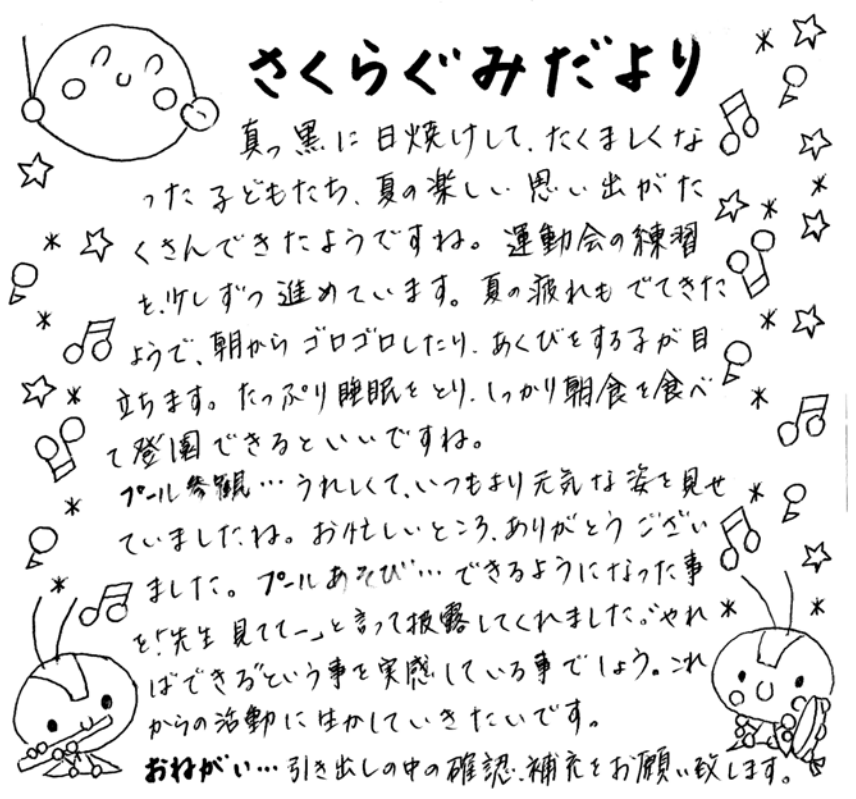 さくらぐみだより
真っ黒に日焼けして、たくましくな
った子どもたち、夏の楽しい思い出がた
くさんできたようですね。運動会の練習
を、少しずつ進めています。夏の疲れもでてきた
ようで、朝からゴロゴロしたり、あくびをする子が目
立ちます。たっぷり睡眠をとり、しっかり朝食を食べ
て登園できるといいですね。
プール参観…うれしくて、いつもより元気な姿を見せ
ていましたね。お忙しいところ、ありがとうござい
ました。プールあそび…できるようになった事
を「先生見ててー」と言って披露してくれました。“やれ
ばできる”という事を実感している事でしょう。これ
からの活動に生かしていきたいです。
おねがい…引き出しの中の確認、補充をお願い致します。